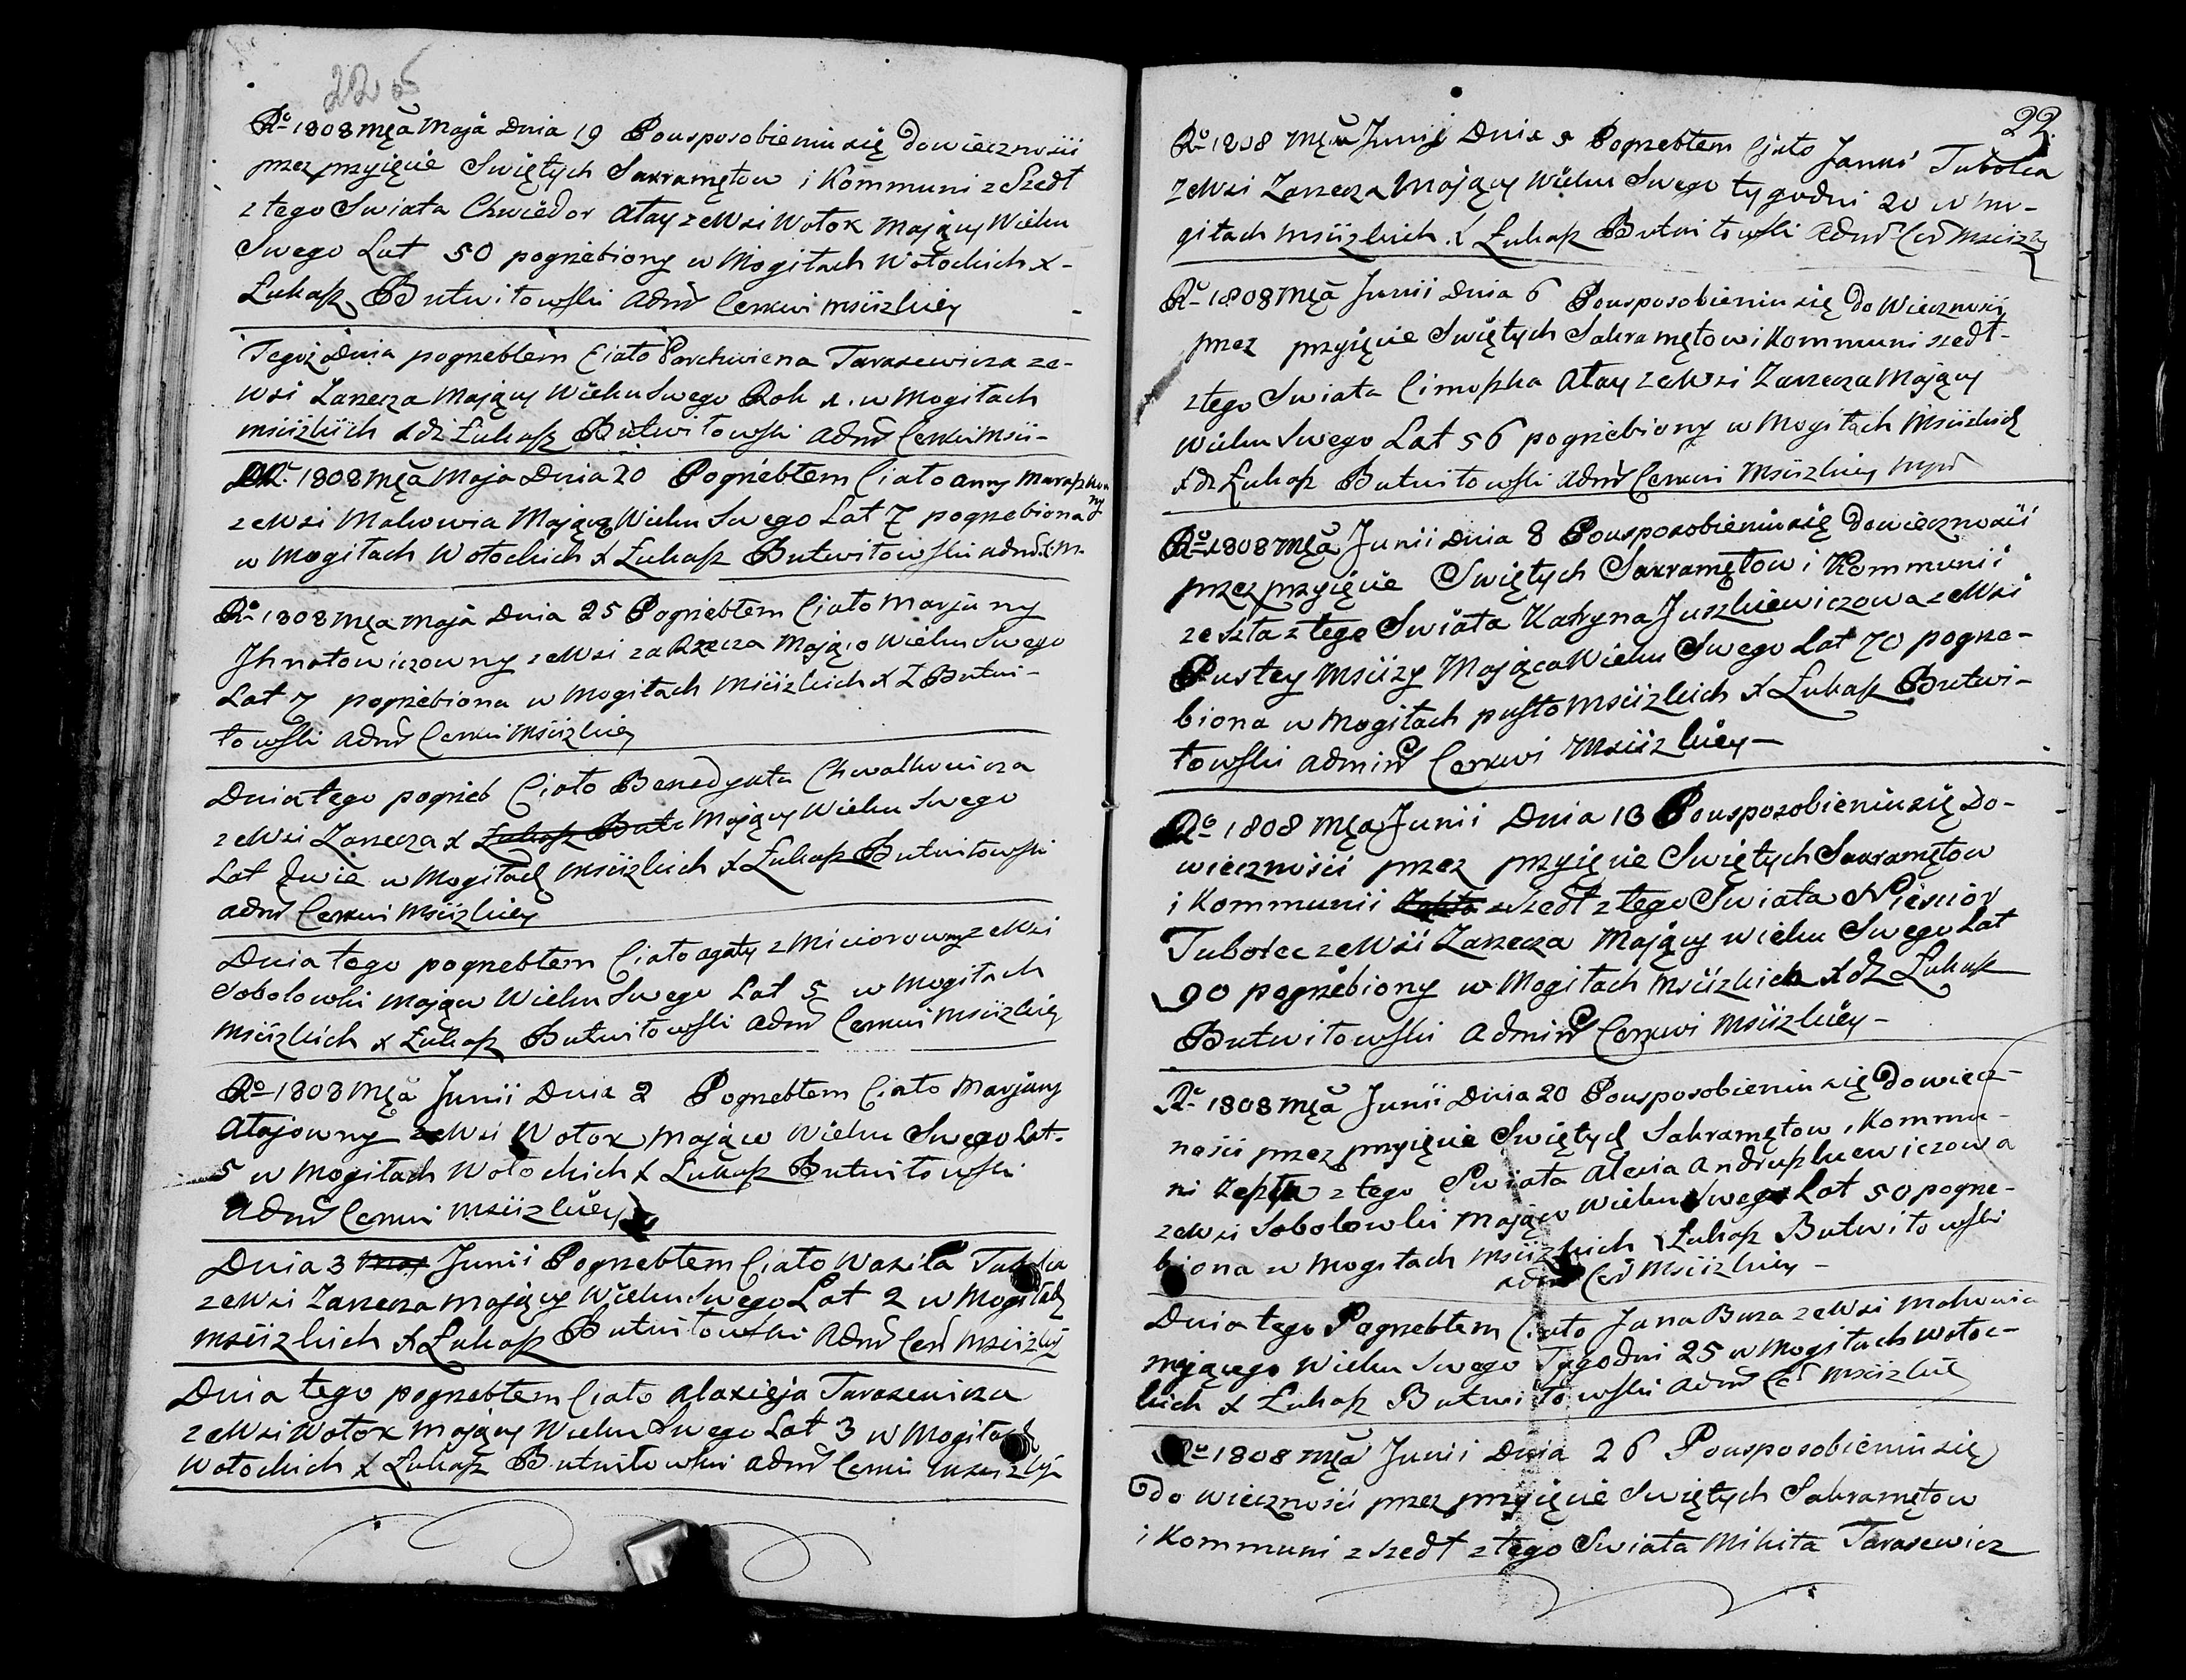 22
Ro 1808 Mca Maja Dnia 19 Pousposobieniu się do wiecznosci
przez przyięcie Swiętych Sakramętow i Kommuni zeszedł
z tego Swiata Chwiedor Ałay ze Wsi Wołok Maiący Wieku
Swego Lat 50 pogrzebiony w Mogiłach Wołockich X
Łukasz Butwiłowski Admr Cerkwi Mściżkiey
Tegoż Dnia pogrzebłem Ciało Parchwiena Tarasewicza ze
Wsi Zarzecza Mający Wieku Swego Rok 1. w Mogiłach
Mściżkich Xdz Łukasz Butwiłowski Admr Cerkwi Mści-
Ro 1808 Mca Maja Dnia 20 Pogrzebłem Ciało Anny
ze Wsi Makowia Mającą Wieku Swego Lat 7 pogrzebiona
w Mogiłach Wołockich X Łukasz Butwiłowski Admr C. M.
Ro 1808 Mca Maja Dnia 25 Pogrzebłem Ciało Maryjany
Jhnatowiczowny ze Wsi Zarzecza Mająco Wieku Swego
Lat 7 pogrzebiona w Mogiłach Mściżkich X Ł Butwi-
łowski Admr Cerkwi Mściżkiey
Dnia tego pogrzeb Ciało Benedykta Chwalkowicza
ze Wsi Zarzecza X Łukasz Butw Mający Wieku Swego
Lat dwie w Mogiłach Mściżkich X Łukasz Butwiłowski
Admr Cerkwi Mściżkiey
Dnia tego pogrzebłem Ciało Agaty Zmiciorowny ze Wsi
Sobolowki Mająco Wieku Swego Lat 5 w Mogiłach
Mściżkich X Łukasz Butwiłowski Admr Cerkwi Mściżkiey
Ro 1808 Mca Junii Dnia 2 Pogrzebłem Ciało Maryjany
Ałajowny ze Wsi Wołok Mająco Wieku Swego Lat
5 w Mogiłach Wołockich X Łukasz Butwiłowski
Admr Cerkwi Mściżkiey
Dnia 3 Maj Junii Pogrzebłem Ciało Wasila
ze Wsi Zarzecza Mający Wieku Swego Lat 2 w Mogiłach
Mściżkich X Łukasz Butwiłowski Admr Cer Mściżkiy
Dnia tego pogrzebłem Ciało Alaxieja Tarasewicza
ze Wsi Wołok Mający Wieku Swego Lat 3 w Mogiłach
Wołockich X Łukasz Butwiłowski Admr Cerkwi Mściżkiy
22.
Ro 1808 Mca Junij Dnia 5 Pogrzebłem Ciało Janki Tubolca
ze Wsi Zarzecza Mający Wieku Swego tygodni 20 w Mo-
giłach Mściżkich X Łukasz Butwiłowski Admr Cer Mściżky
Ro 1808 Mca Junii Dnia 6 Pousposobieniu się do Wiecznosci
przez przyięcie Swiętych Sakramętow i Kommuni szedł
z tego Swiata Cimoszka Ałay ze Wsi Zarzecza Mający
Wieku Swego Lat 56 pogrzebiony w Mogiłach Mściżkich
Xdz Łukasz Butwiłowski Admr Cerkwi Mściżkiey mpr
Ro 1808 Mca Junii Dnia 8 Pousposobieniu się do wiecznosci
przez przyięcie Swiętych Sakramętow i Kommunii
zeszła z tego Swiata Katryna Juszkiewiczowa ze Wsi
Pustey Mściży Mająca Wieku Swego Lat 70 pogrze-
biona w Mogiłach pusto Mściżkich X Łukasz Butwi-
łowski Adminr Cerkwi Mściżkiey
Ro 1808 Mca Junii Dnia 13 Pousposobieniu się do
wieczności przez przyięcie Swiętych Sakramętow
i Kommunii zszedł z tego Swiata Niescior
Tubolec ze Wsi Zarzecza Mający wieku Swego Lat
90 pogrzebiony w Mogiłach Mściżkich Xdz Łukasz
Butwiłowski Adminr Cerkwi Mściżkiey
Ro 1808 Mca Junii Dnia 20 Pousposobieniu się do wiecz-
ności przez przyięcie Swiętych Sakramętow i Kommu-
ni zeszła z tego Swiata Alexia Andruszkiewiczowa
ze Wsi Sobolowki Mająco Wieku Swego Lat 50 pogrze-
biona w Mogiłach Mściżkich X Łukasz Butwiłowski
Admr Cer Mściżkiey
Dnia tego Pogrzebłem Ciało Jana Buza ze Wsi Makowia
mającego Wieku Swego Tygodni 25 w Mogiłach Wołoc-
kich X Łukasz Butwiłowski Admr Cer Mściżkiey
Ro 1808 Mca Junii Dnia 26 Pousposobieniu się
do wieczności przez przyięcie Swiętych Sakramętow
i Kommuni zszedł z tego Swiata Mikita Tarasewicz